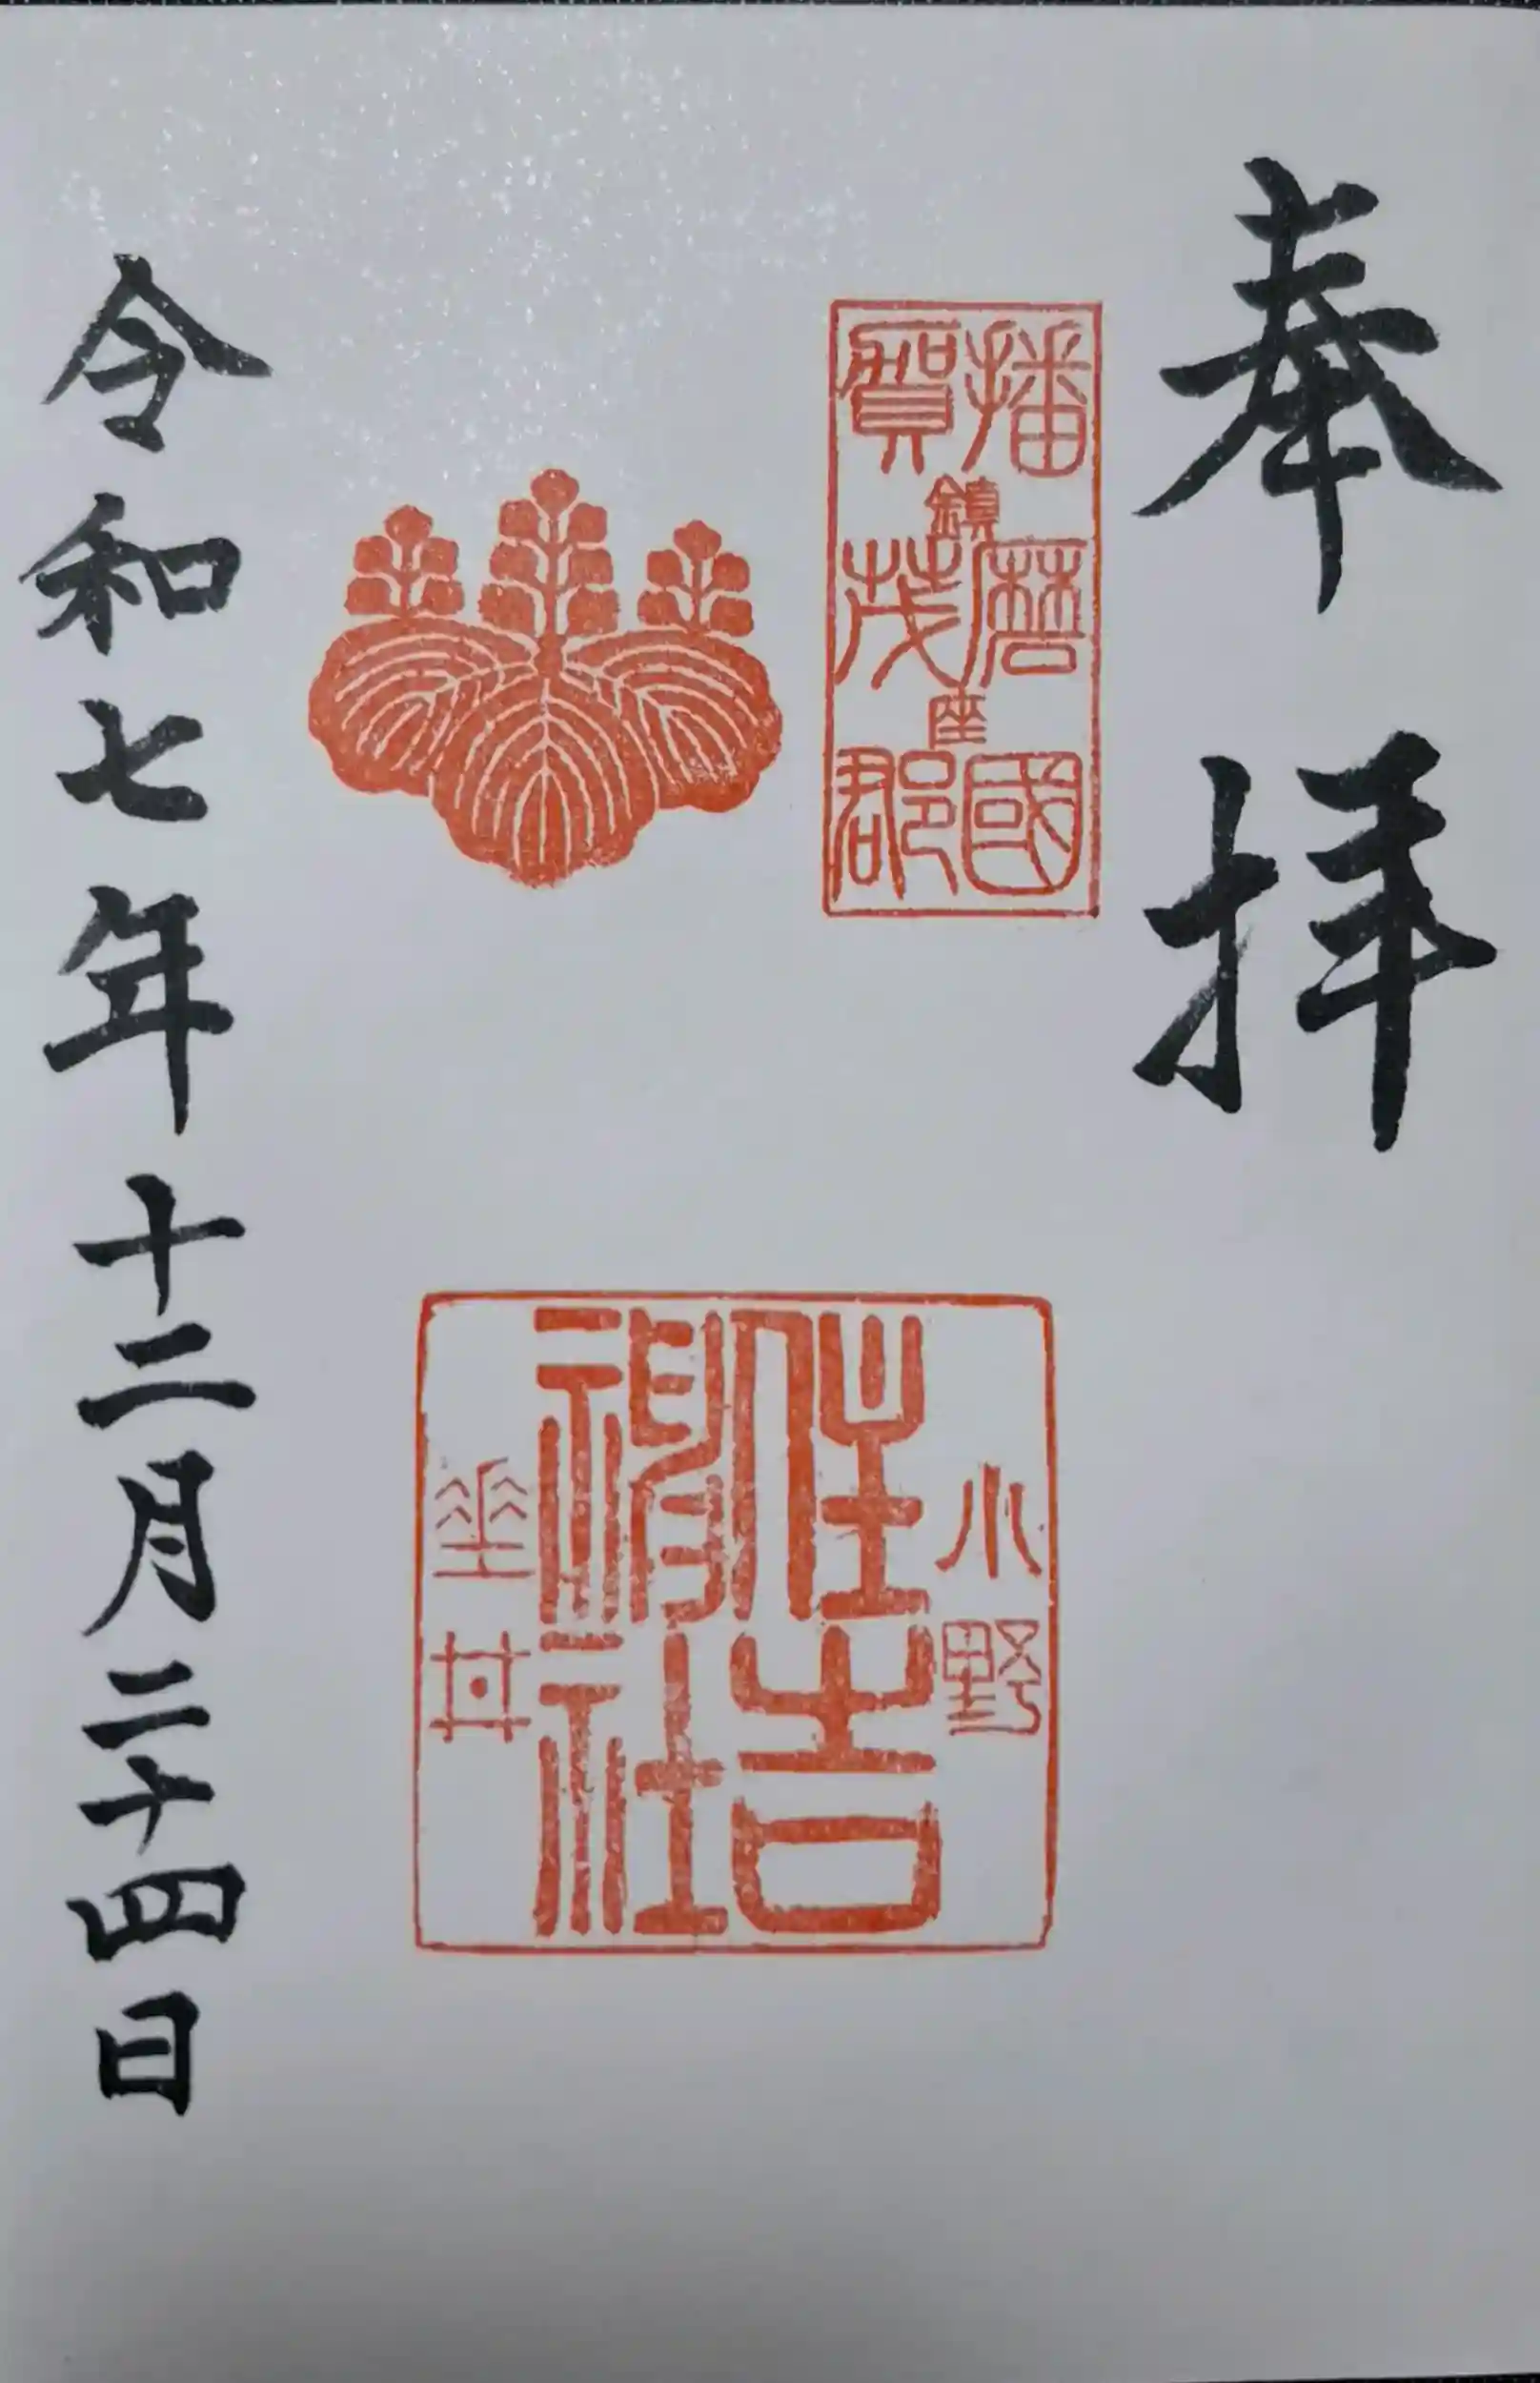 奉拝
播磨國
鎮座
賀茂郡
小野
住吉
神社
坐丼
令和七年十二月二十四日